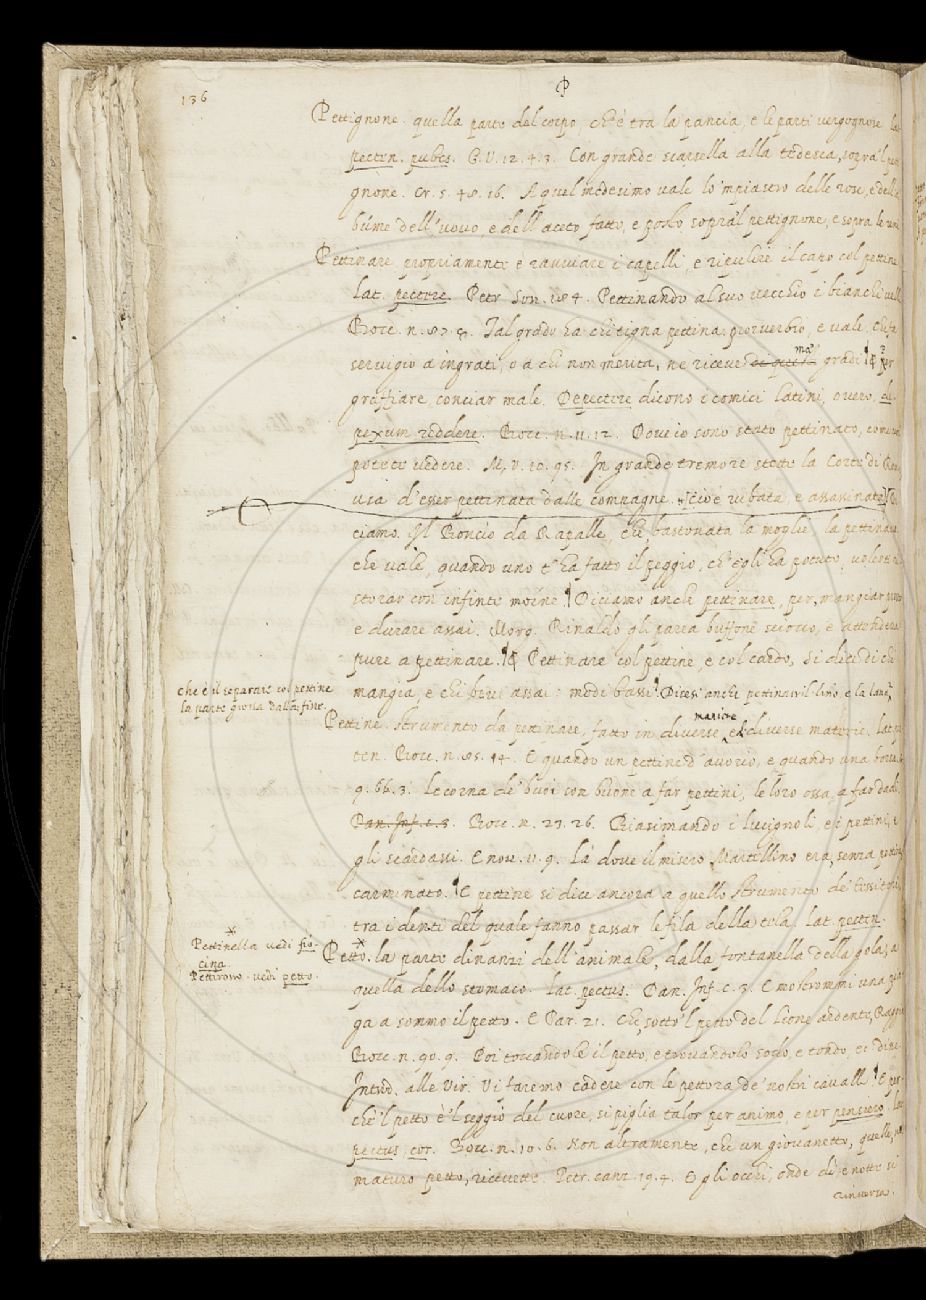 136
P
Pettignone. quella parte del corpo, ch'è tra la pancia, e le parti vergognose
pecten. pubes. G. V. 12. 4. 3. Con grande scarsella alla tedesca, sopra'l
gnone. Cr. 5. 48. 16. A quel medesimo vale lo 'mpiastro delle rose, e dell'
búme dell'uovo, e dell'aceto fatto, e posto sopra'l pettignone, e sopra le
Pettinare. propriamente e ravviare i capelli, e ripulire il capo col pettine
Lat. pectere. Petr. Son. 184. Pettinando al suo vecchio i bianchi
Bocc. n. 87. 8. Tal grado ha chi tigna pettina. proverbio, e vale, chi fa
servigio a ingrati, o a chi non merita, ne riceve ma' gradi. per
graffiare, conciar male. Depectere dicono i comici latini, overo, de-
pexum reddere. Bocc. n. 11. 12. Dove io sono stato pettinato, come
potete vedere. M. V. 10. 95. In grande tremore stette la Corte di
usa d'esser pettinata dalle compagne. cioè rubata, e assassinata
ciamo. Il Boncio da Rapalle, che bastonata la moglie la pettinava
che vale, quando uno t'ha fatto il peggio, ch'egli ha potuto,
storar con infinte moine. Diciamo anche pettinare, per mangiar
e durare assai. Morg. Rinaldo gli parea buffone sciocco, e attendeva
pure a pettinare. Pettinare col pettine, e col cardo, si dice di chi
mangia, e chi bevi assai: modi bassi. Dicesi anche pettinar il lino e la lana,
che è il separare col pettine
la parte grossa dalla fine.
Pettine. strumento da pettinare, fatto in diverse maniere, e di diverse materie. Lat.
ten. Bocc. n. 85. 14. E quando un pettine d'avorio, e quando una borsa.
9. 66. 3. Le corna de' buoi son buone a far pettini, le loro ossa, a far dadi.
Dan. Inf. c. 3. Bocc. n. 27. 26. Biasimando i lucignoli, e i pettini, e
gli scardassi. E nov. v. 9. Là dove il misero Martellino era, senza pettine
carminato. E pettine si dice ancora a quello strumento de' tessitori,
tra i denti del quale fanno passar le fila della tela. Lat. pecten.
Pettinella vedi fio-
cina.
Pettirosso. vedi petto.
Petto. la parte dinanzi dell'animale, dalla fontanella della gola, a
quella dello stomaco. Lat. pectus. Dan. Inf. c. 3. E mostrommi una pia-
ga a sommo il petto. E Par. 21. Che sotto'l petto del Lione ardente, Raggia
Bocc. n. 90. 9. Poi toccandole il petto, e trovandolo sodo, e tondo, et
Introd. alle Vir. Vi faremo cadere con le pettora de' nostri cavalli. E per-
chè 'l petto è 'l seggio del cuore, si piglia talor per animo, e per pensiero. Lat.
pectus, cor. Bocc. n. 10. 6. Non altramente, che un giovanetto, quelle, nel
maturo petto, ricevette. Petr. canz. 19. 4. E gli occhi, onde dì, e notte si
rinversa.